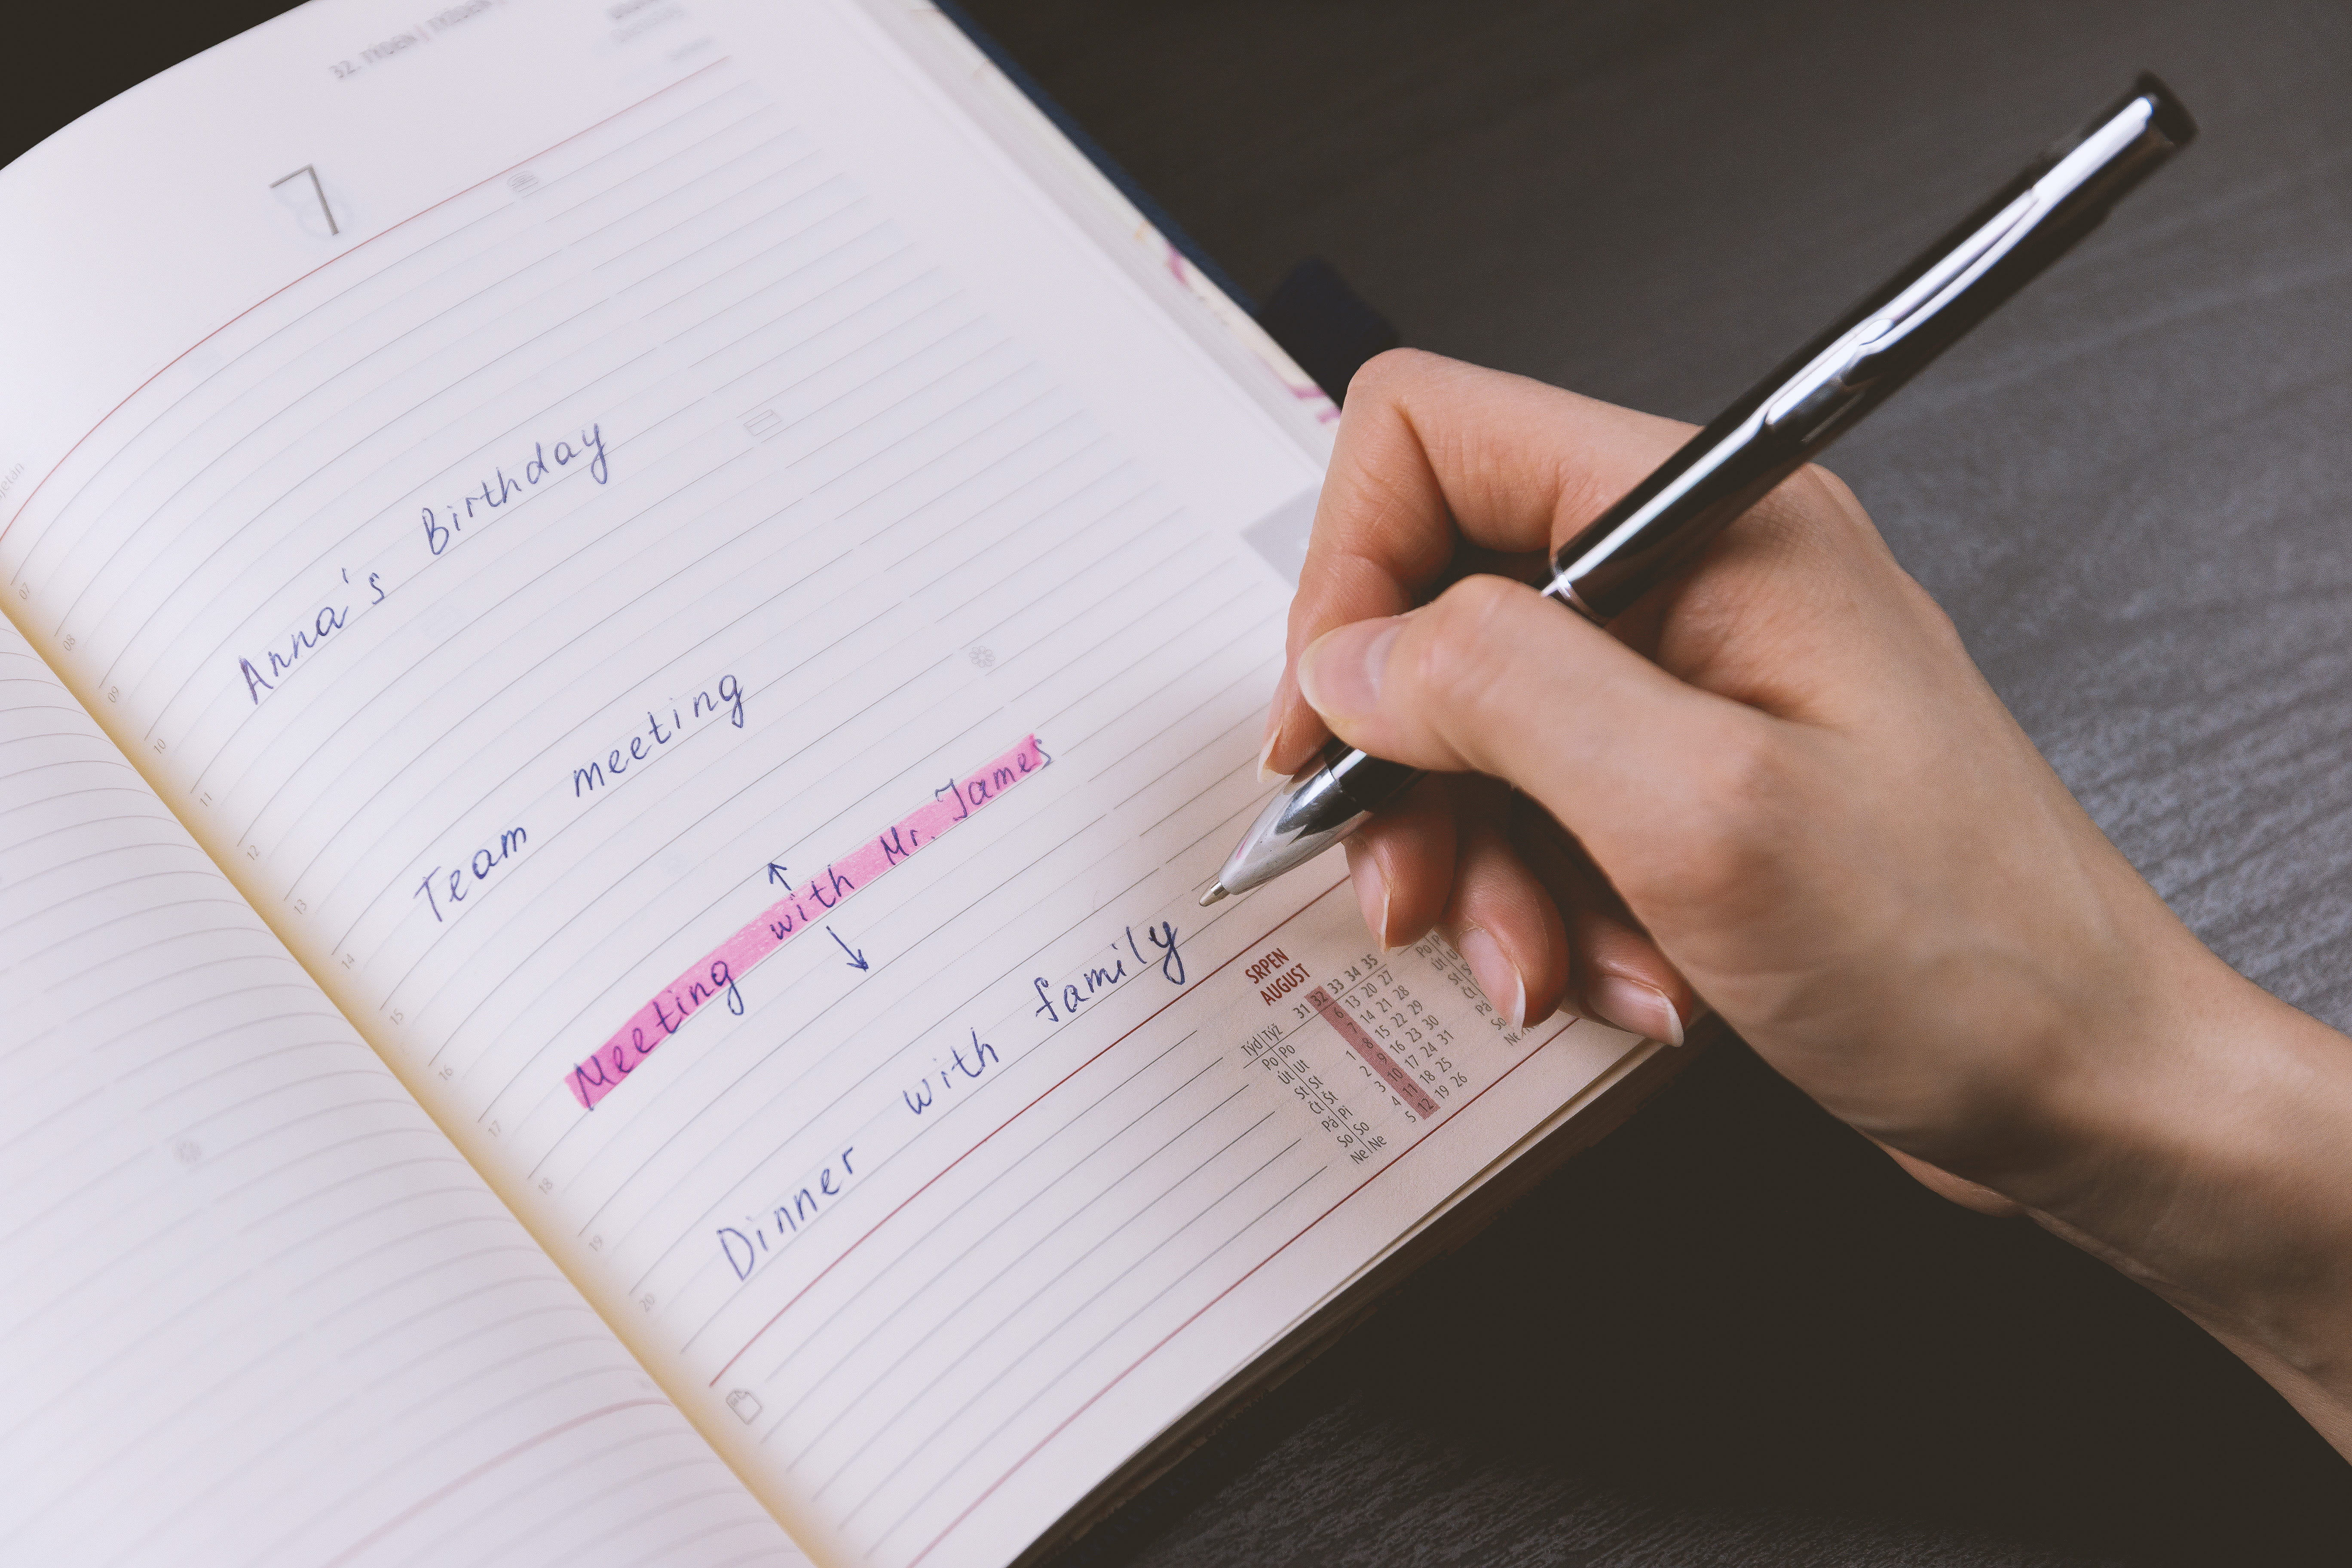 32. TÝDEN
7
Anna's Birthday
Team meeting
Meeting with Mr. James
Dinner with family
07
08
09
10
11
12
13
14
15
16
17
18
19
20
SRPEN
AUGUST
Týd Týž 31 32 33 34 35
Po Po 6 13 20 27
Út Ut 7 14 21 28
St St 1 8 15 22 29
Čt Št 2 9 16 23 30
Pá Pi 3 10 17 24 31
So So 4 11 18 25
Ne Ne 5 12 19 26
Po
Út
St
Čt
Pá
So
Ne